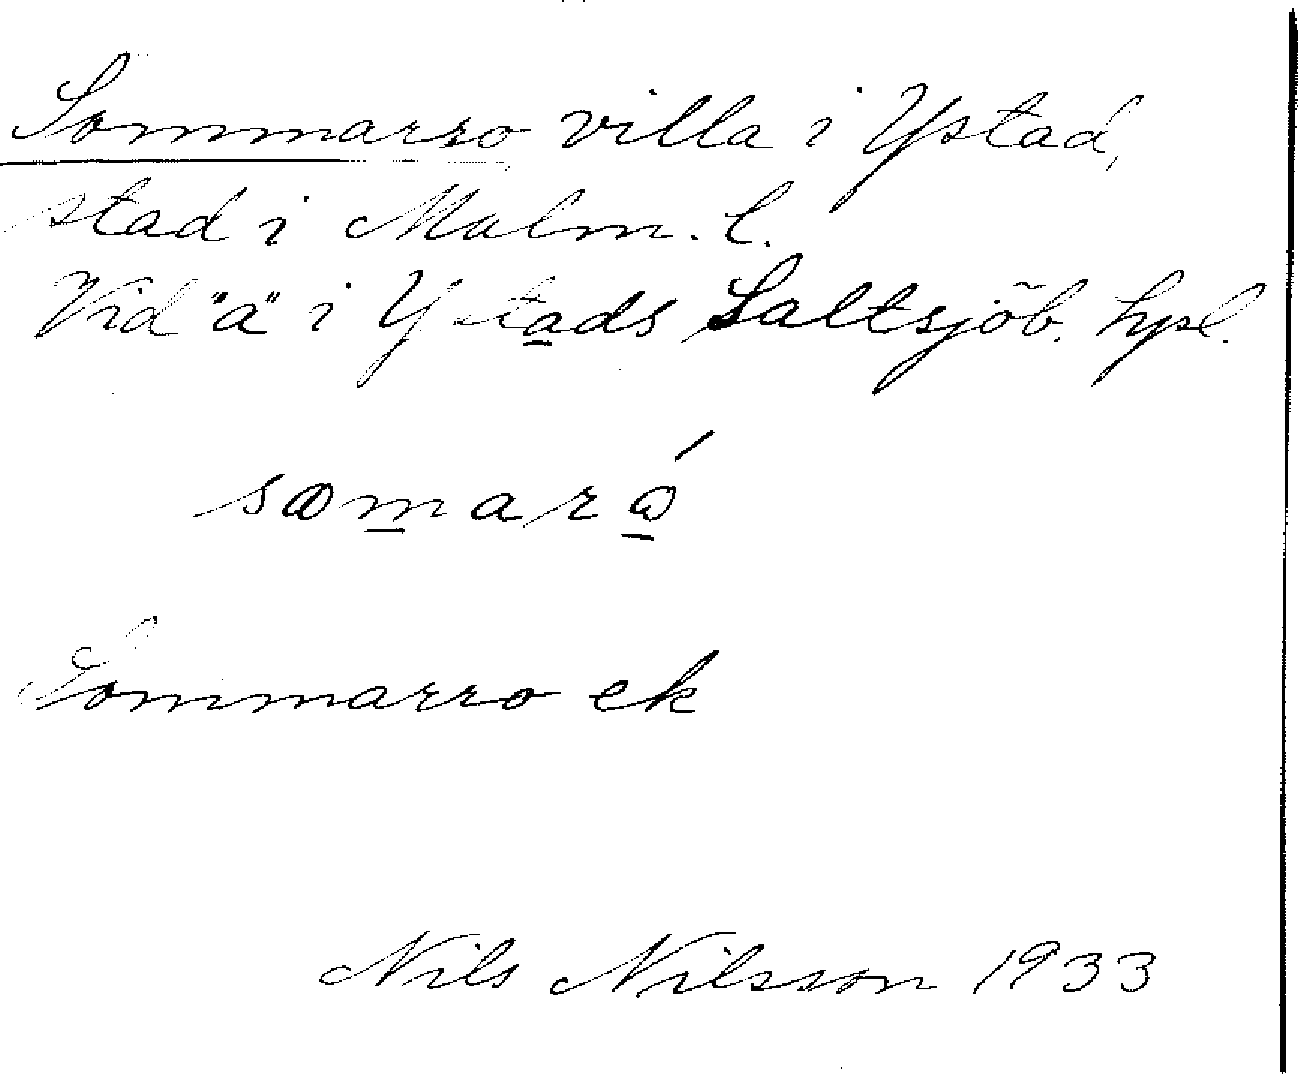 Sommarro villa i Ystad,
stad i Malm. l.
Vid "a" i Ystads Saltsjöb. hpl.
somaró
Sommarro ek
Nils Nilsson 1933